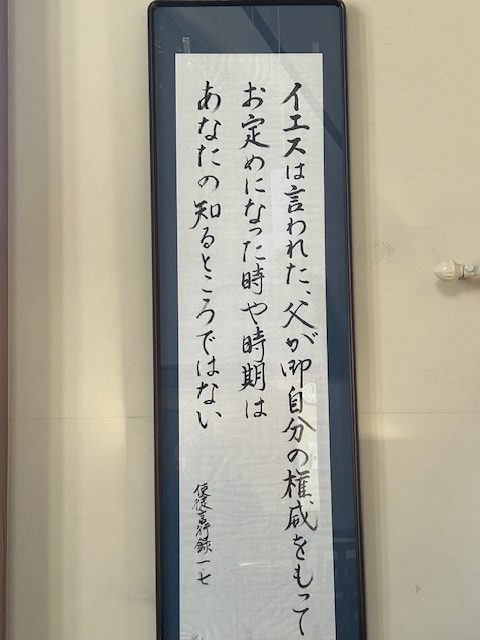 イエスは言われた、父が御自分の権威をもって
お定めになった時や時期は
あなたの知るところではない
使徒言行録一・七